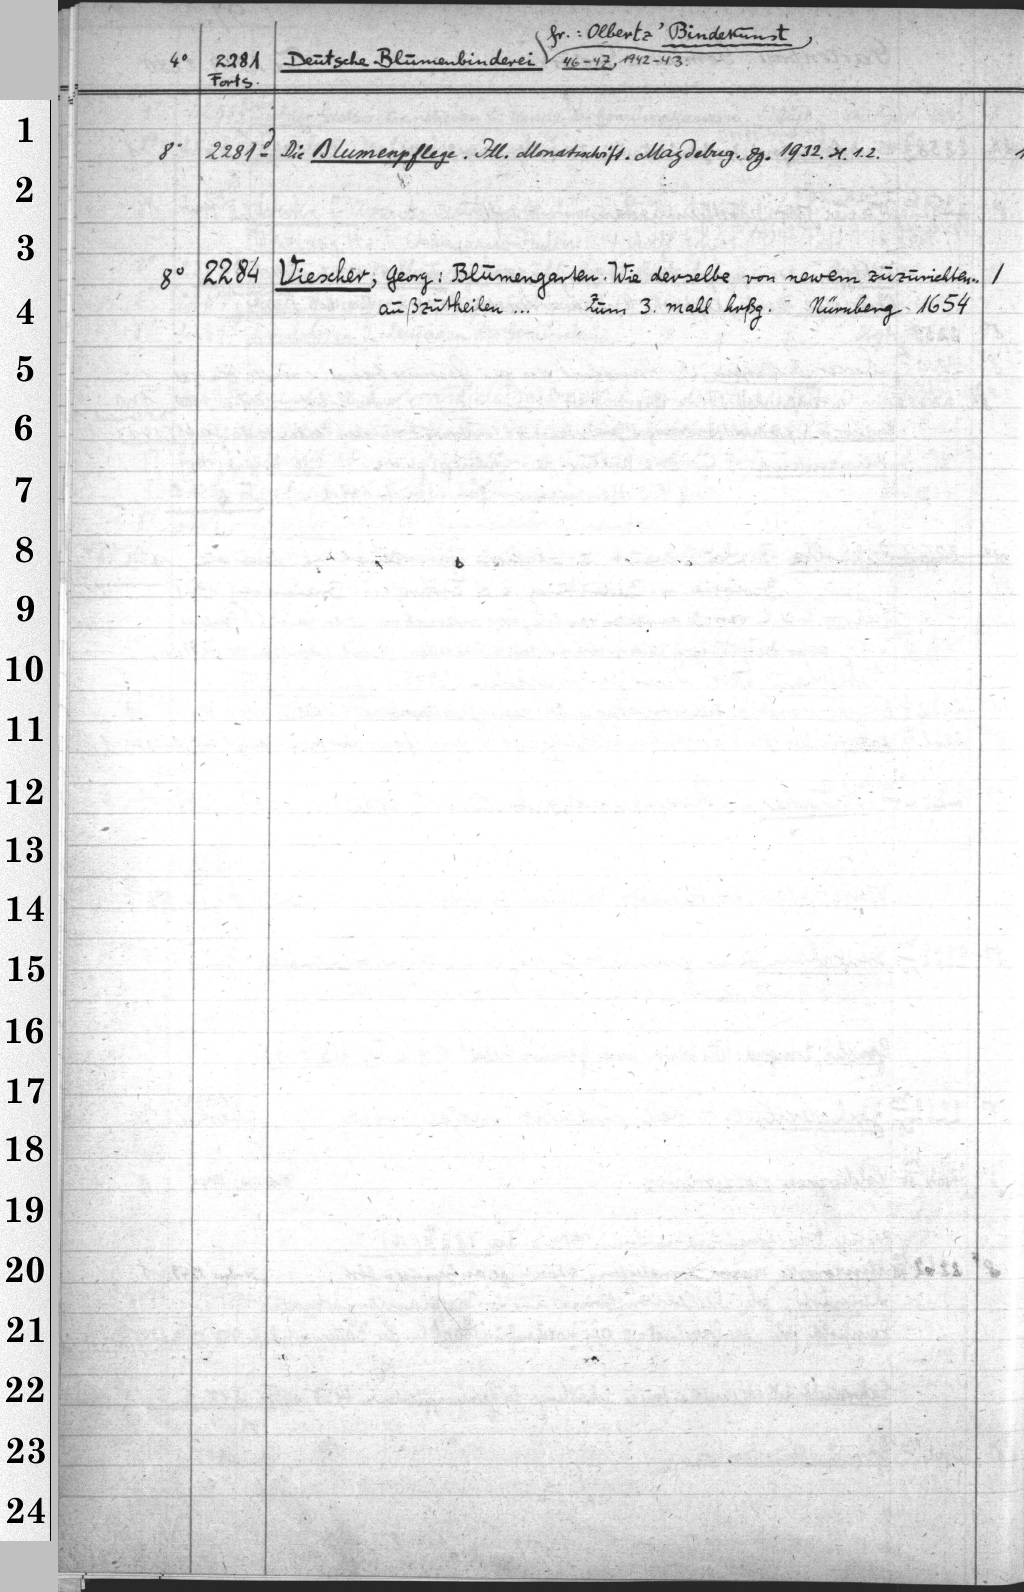 fr.: Olbertz' Bindekunst
4° 2281 Deutsche Blumenbinderei 46-47, 1942-43.
Forts.
1
8° 2281 d Die Blumenpflege. Ill. Monatsschrift. Magdebug. Jg. 1932. H. 1.2. 1
2
3
8° 2284 Viescher, Georg: Blumengarten. Wie derselbe von newem zuzurichten.. 1
4 außzutheilen ... Zum 3. mahl hrßg. - Nürnberg 1654
5
6
7
8
9
10
11
12
13
14
15
16
17
18
19
20
21
22
23
24